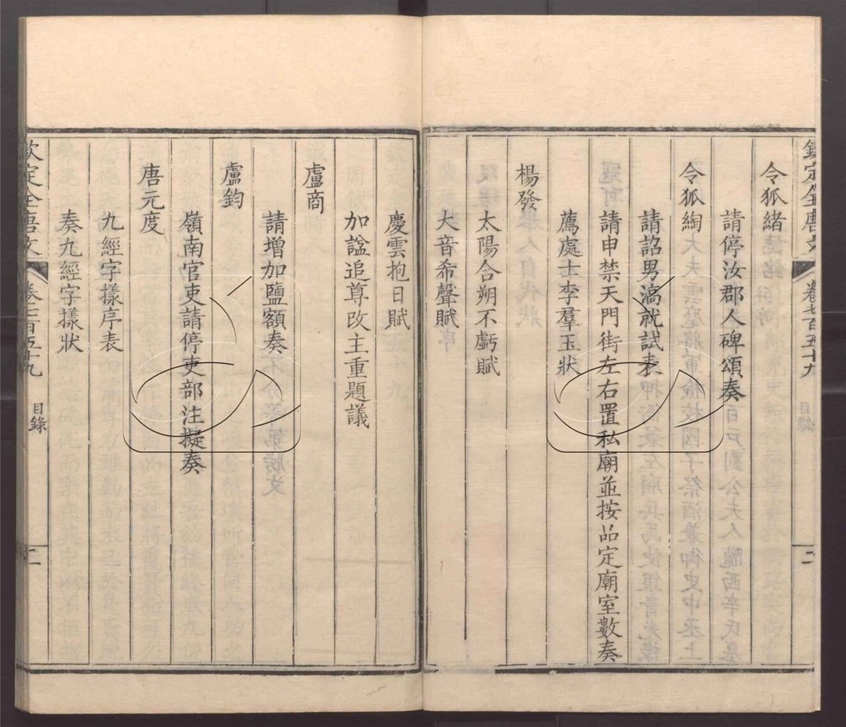 欽定全唐文 卷七百五十九 目錄 二
令狐緒
請停汝郡人碑頌奏
令狐綯
請詔男滈就試表
請申禁天門街左右置私廟並按品定廟室數奏
薦處士李羣玉狀
楊發
太陽合朔不虧賦
大音希聲賦
慶雲抱日賦
加諡追尊改主重題議
盧商
請增加鹽額奏
盧鈞
嶺南官吏請停吏部注擬奏
唐元度
九經字樣序表
奏九經字樣狀
欽定全唐文 卷七百五十九 目錄 二